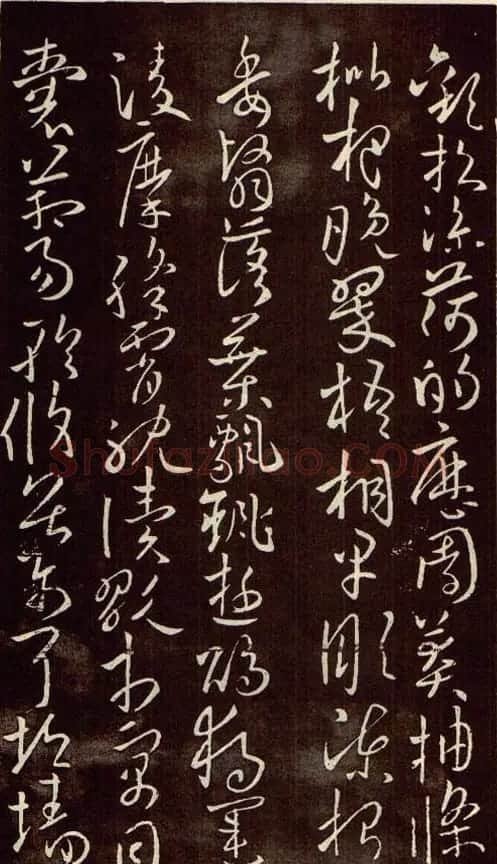 歡招渠荷的歷園莽抽條
枇杷晚翠梧桐早彫陳根
委翳落葉飄颻遊鵾獨運
凌摩絳霄耽讀翫市寓目
囊箱易輶攸畏屬耳垣墻